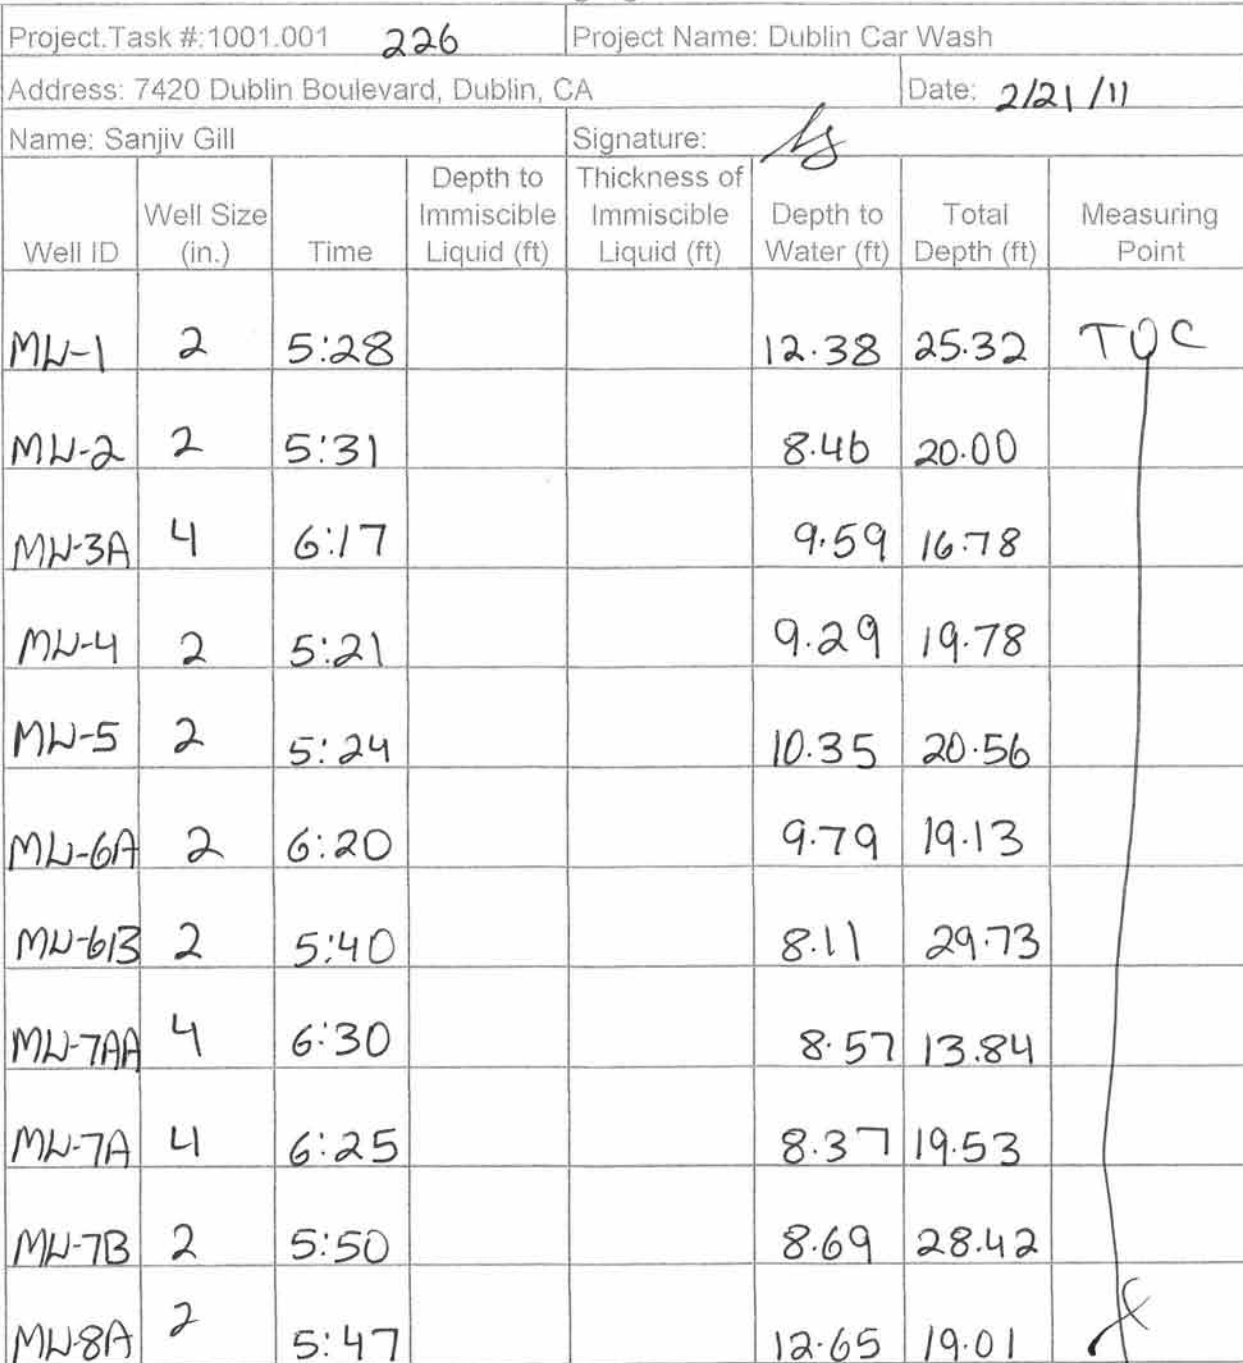 Project.Task #:1001.001 226 Project Name: Dublin Car Wash
Address: 7420 Dublin Boulevard, Dublin, CA Date: 2/21/11
Name: Sanjiv Gill Signature:
Well ID Well Size (in.) Time Depth to Immiscible Liquid (ft) Thickness of Immiscible Liquid (ft) Depth to Water (ft) Total Depth (ft) Measuring Point
MW-1 2 5:28 12.38 25.32 TOC
MW-2 2 5:31 8.46 20.00
MW-3A 4 6:17 9.59 16.78
MW-4 2 5:21 9.29 19.78
MW-5 2 5:24 10.35 20.56
MW-6A 2 6:20 9.79 19.13
MW-6B 2 5:40 8.11 29.73
MW-7AA 4 6:30 8.57 13.84
MW-7A 4 6:25 8.37 19.53
MW-7B 2 5:50 8.69 28.42
MW-8A 2 5:47 12.65 19.01